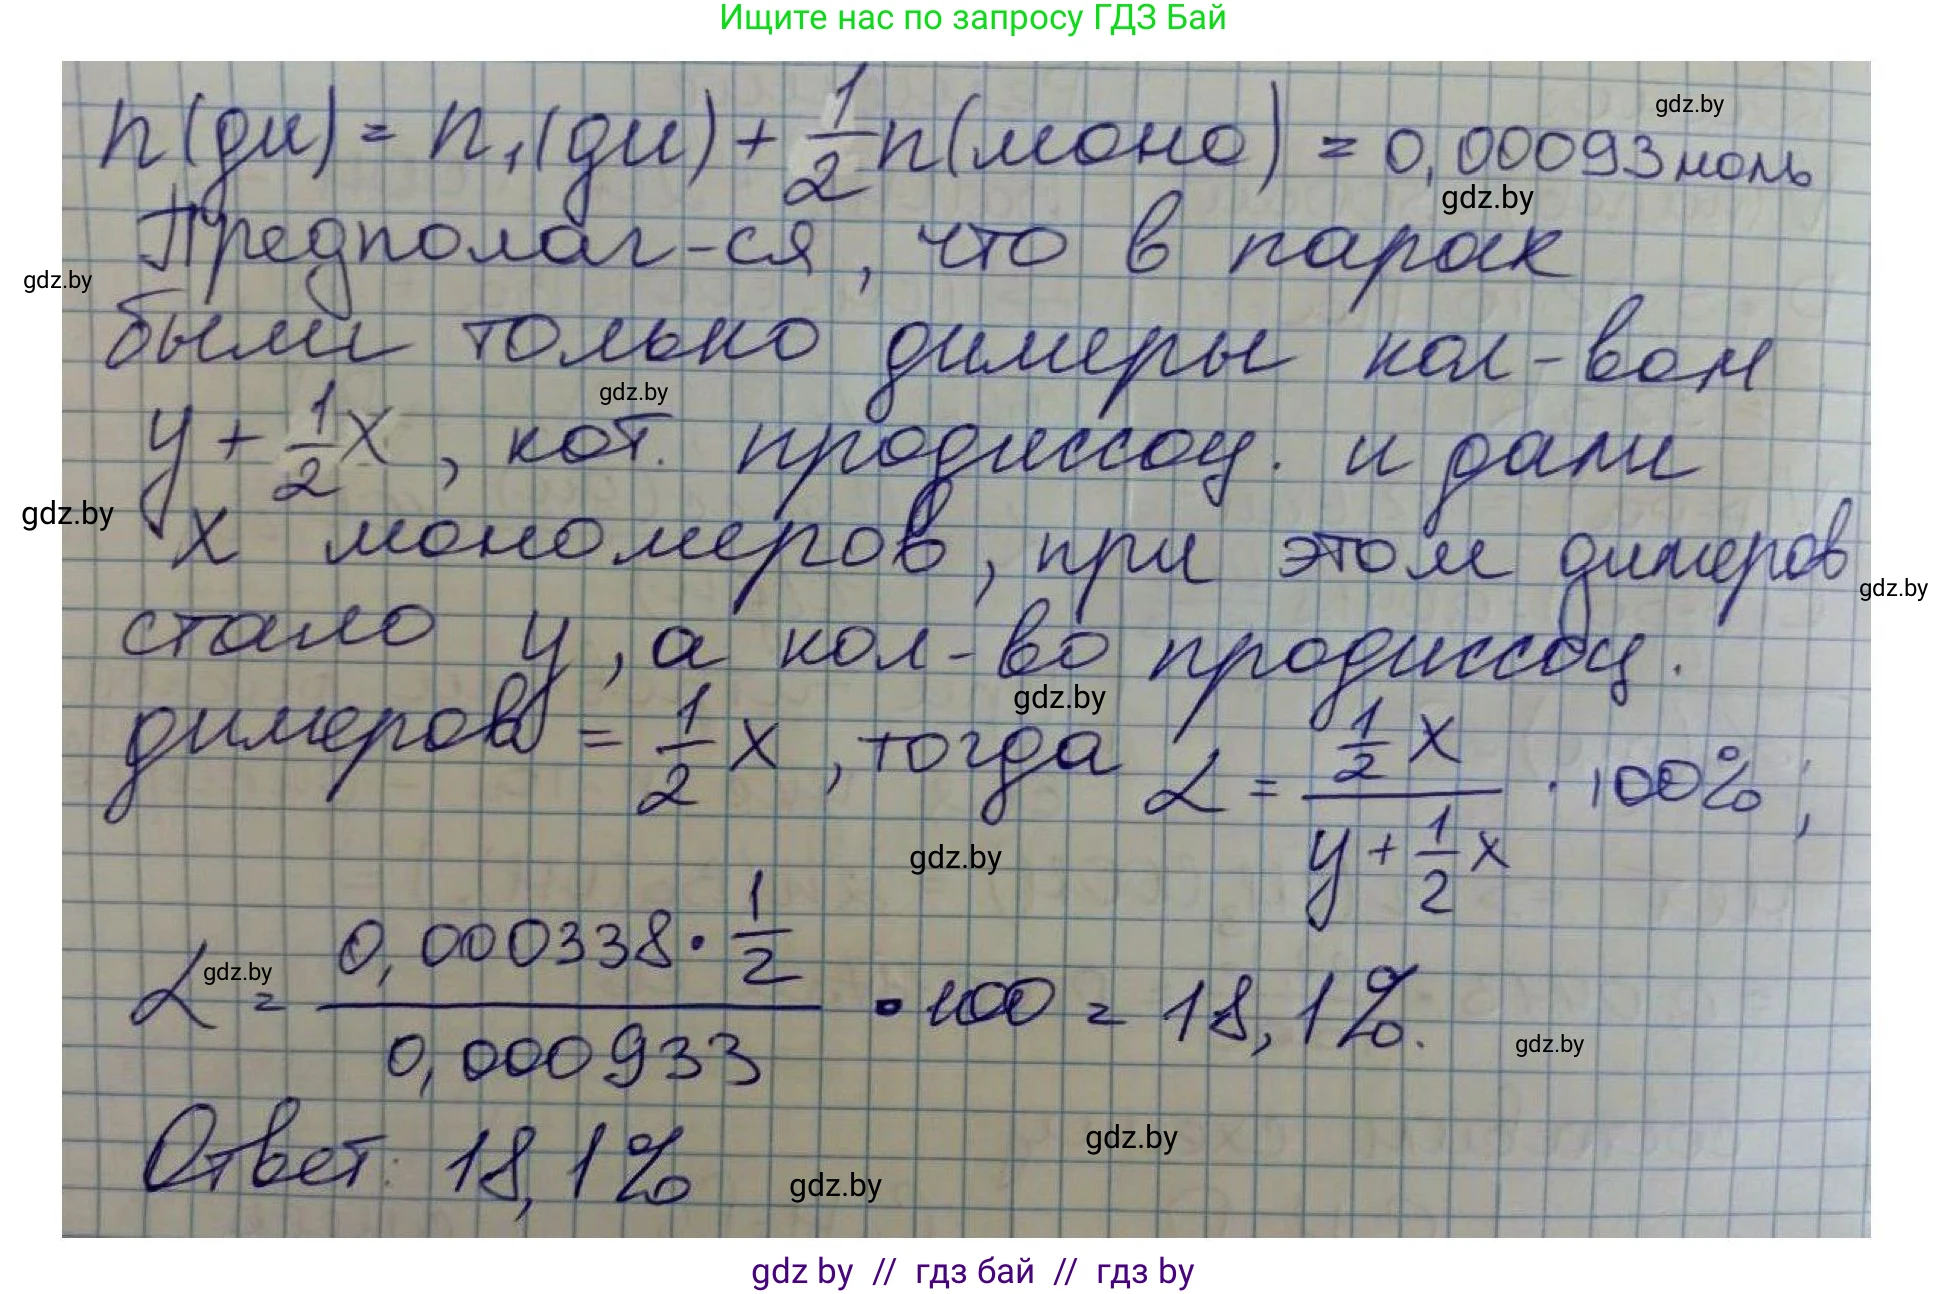 Ищите нас по запросу ГДЗ Бай
n(ди) = n₁(ди) + 1/2 n(моно) = 0,00093 моль
gdz.by
gdz.by
Предполаг-ся, что в парах
gdz.by
были только димеры кол-вом
gdz.by
y + 1/2 x, кот. продиссоц. и дали
gdz.by
x мономеров, при этом димеров
gdz.by
стало y, а кол-во продиссоц.
gdz.by
димеров = 1/2 x, тогда α = (1/2 x)/(y + 1/2 x) · 100%;
gdz.by
α = (0,000338 · 1/2)/(0,000933) · 100 = 18,1%.
gdz.by
gdz.by
Ответ: 18,1%
gdz.by
gdz.by
gdz by // гдз бай // гдз by